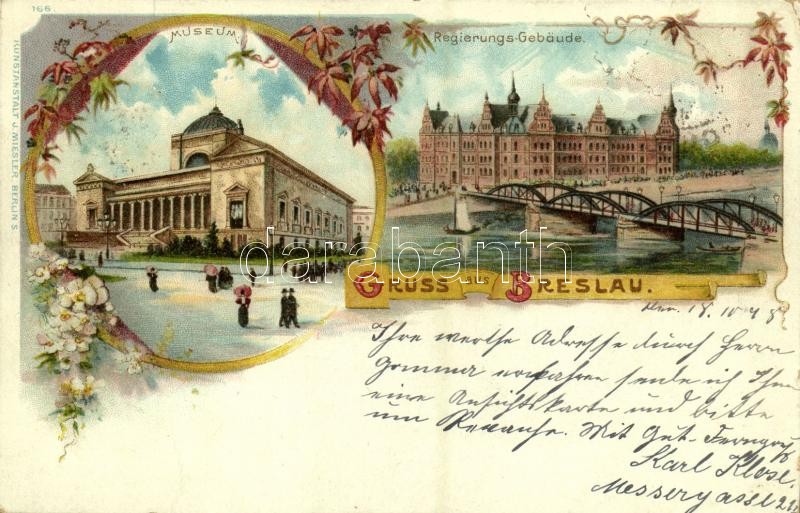 166.
MUSEUM.
Regierungs-Gebäude.
KUNSTANSTALT J. MIESLER, BERLIN S.
darabanth
GRUSS AUS BRESLAU.
18. 10. 98
Ihre werthe Adresse durch Herrn
Gomma erfahren sende ich Ihnen
eine Ansichtskarte und bitte
um Revanche. Mit Gut-Ferngruß
Karl Klose.
Messergasse 21